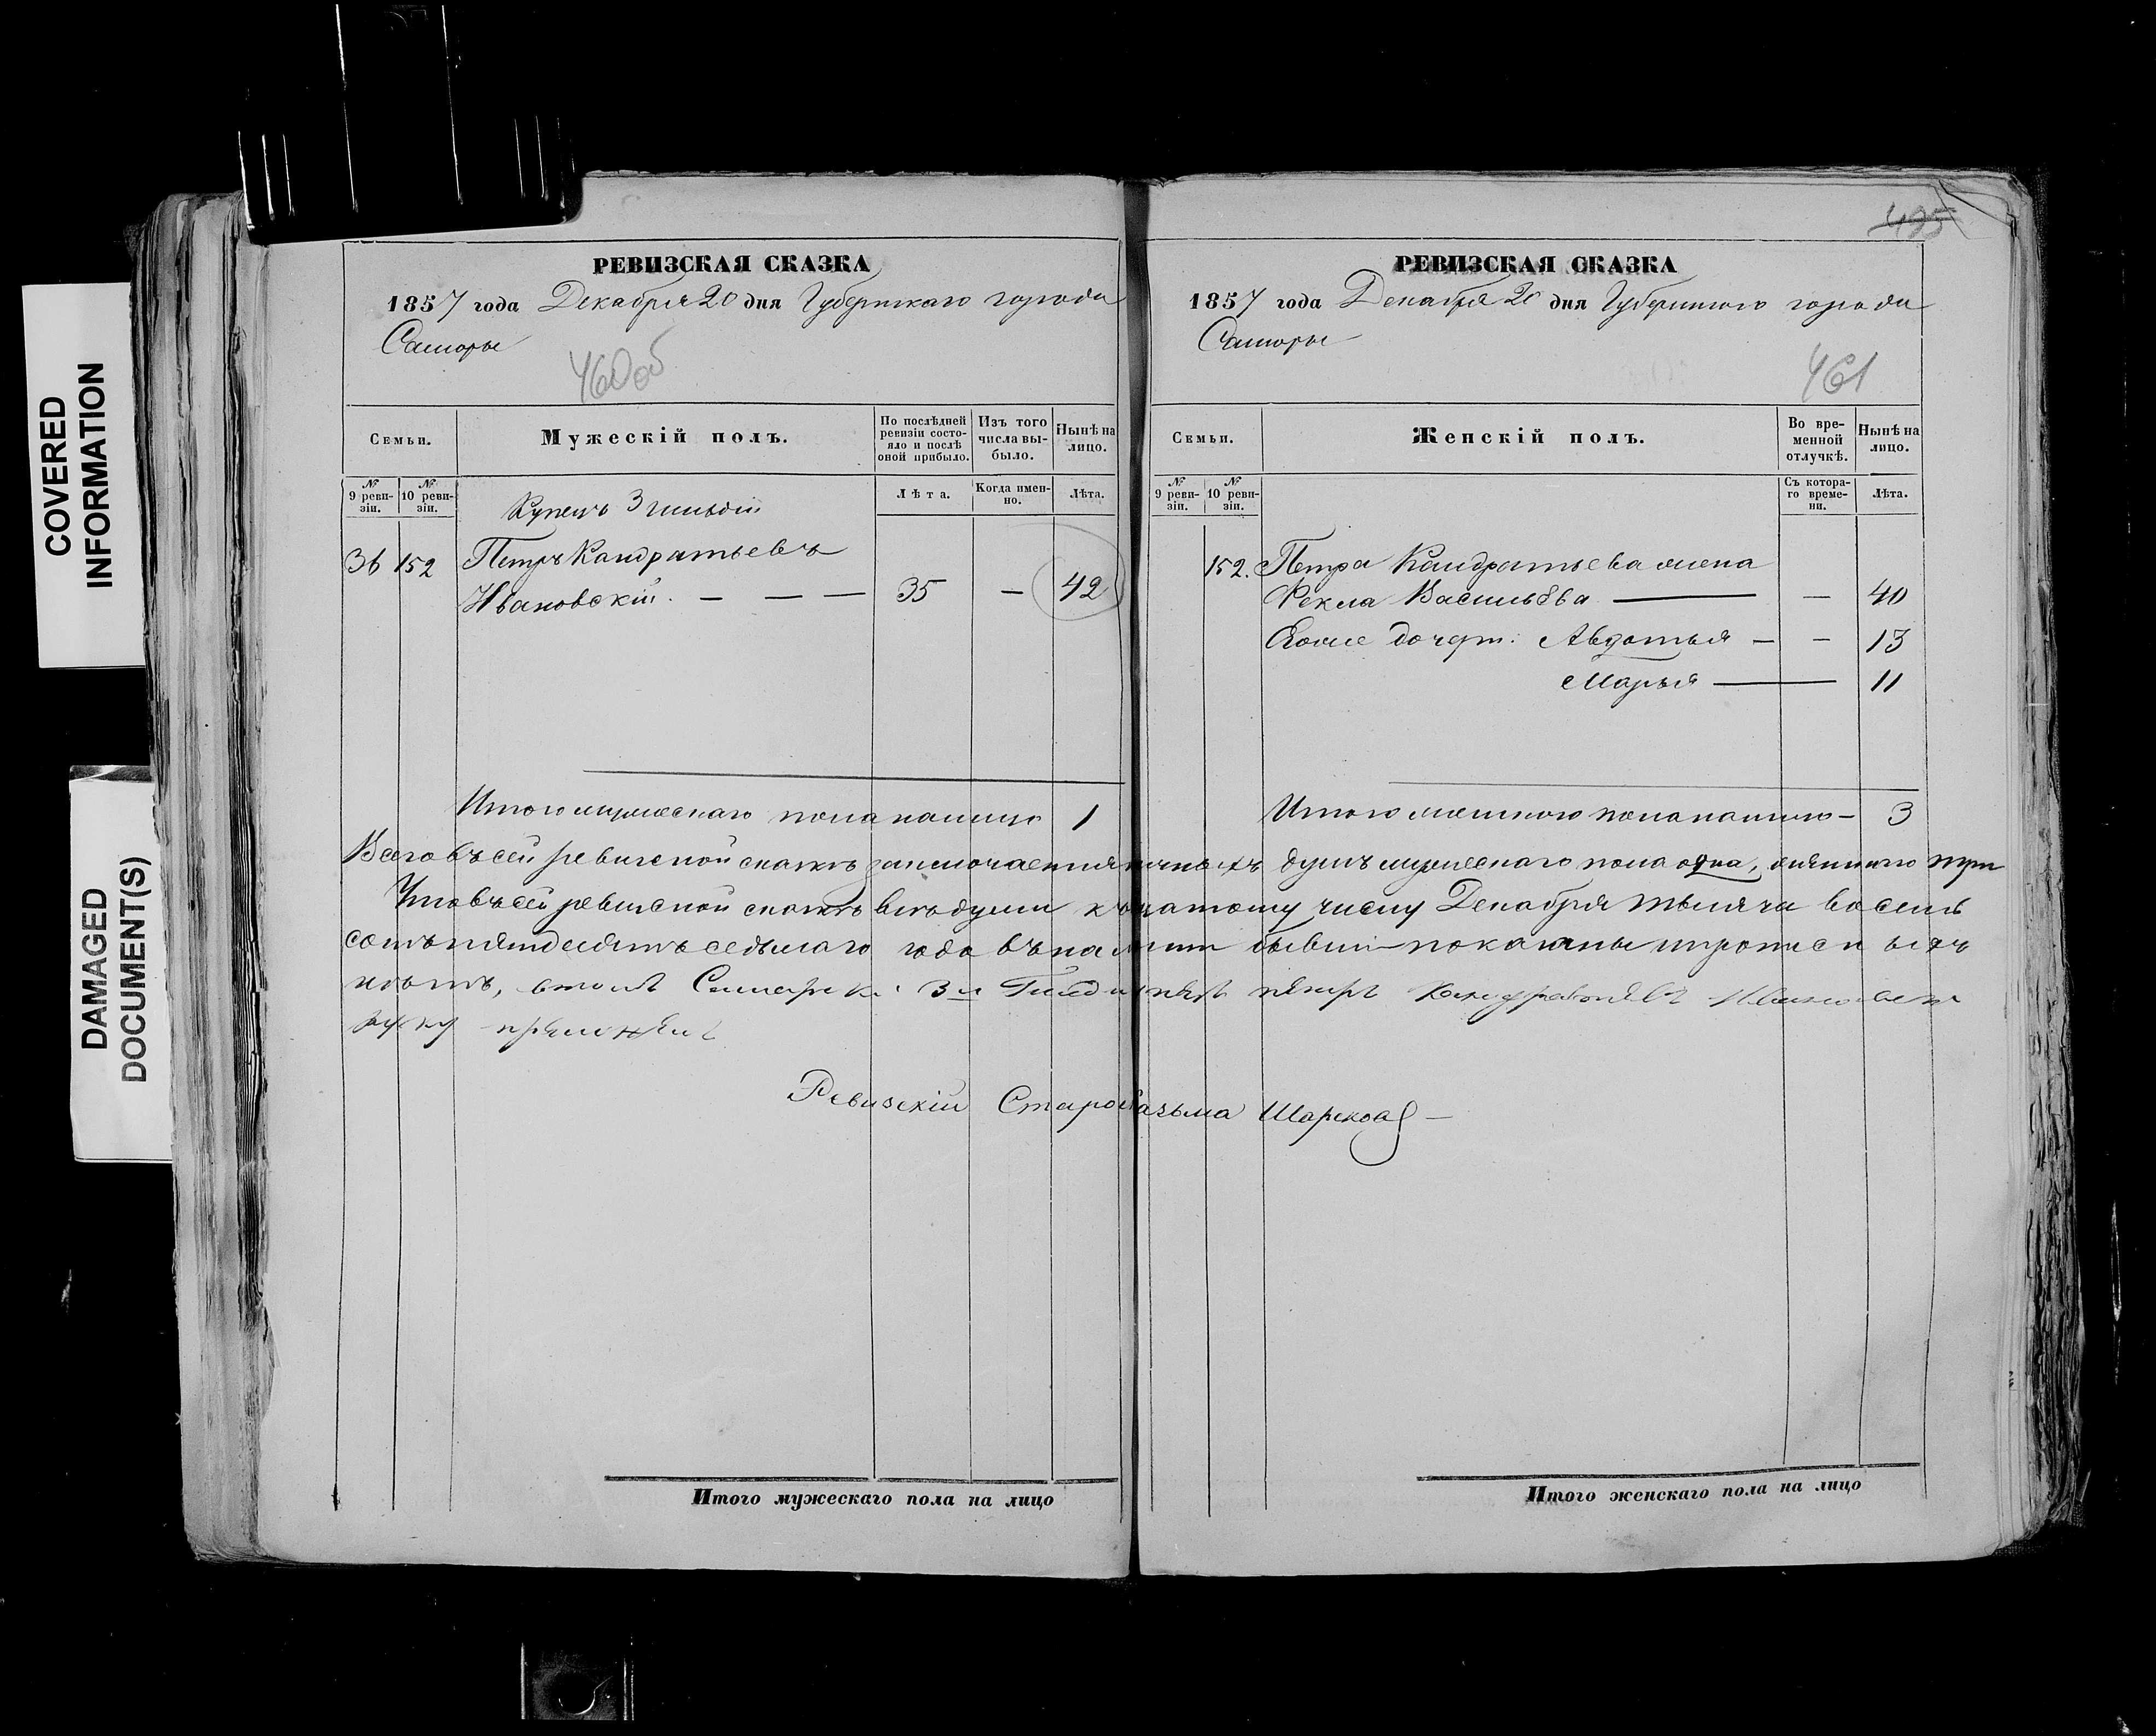 COVERED
INFORMATION
DAMAGED
DOCUMENT(S)
РЕВИЗСКАЯ СКАЗКА
1857 года Декабря 20 дня Губернскаго города
Самары
460об
Семьи.
Мужескій полъ.
По послѣдней ревизіи состояло и послѣ оной прибыло.
Изъ того числа выбыло.
Нынѣ на лицо.
№ 9 ревизіи.
№ 10 ревизіи.
Лѣта.
Когда именно.
Лѣта.
Купецъ 3 гильдіи
36 152 Петръ Кандратьевъ
Ивановскій. — — — 35 — 42
Итого мужескаго пола налицо 1
495
РЕВИЗСКАЯ СКАЗКА
1857 года Декабря 20 дня Губернскаго города
Самары
461
Семьи.
Женскій полъ.
Во временной отлучкѣ.
Нынѣ на лицо.
№ 9 ревизіи.
№ 10 ревизіи.
Съ котораго времени.
Лѣта.
152. Петра Кандратьева жена
Фекла Васильѣва — — 40
Ихъ дочери: Авдотья — — 13
Марья — 11
Итого женскаго пола налицо — 3
Всего въ сей ревизской сказкѣ заключается наличныхъ душъ мужескаго пола одна, женскаго три
Что въ сей ревизской сказкѣ всѣ души къ числу Декабря тысяча восемь
сотъ пятдесятъ седьмаго года въ бывши показаны и прописныхъ
нѣтъ, въ томъ 3й Гилди Петръ Ивановски
руку приложилъ
Ревизскій Староста Казьма Шарковъ —
Итого мужескаго пола на лицо
Итого женскаго пола на лицо